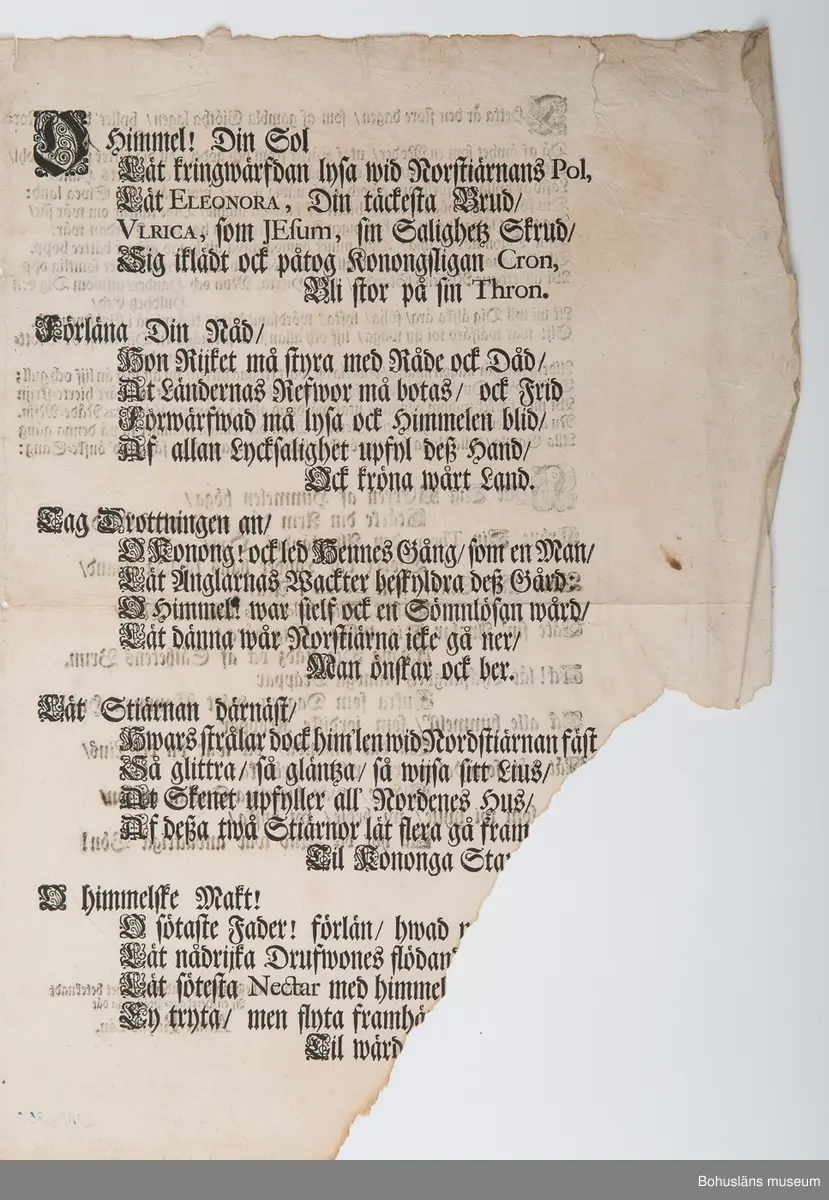 O Himmel! Din Sol
Låt kringwärfdan lysa wid Norstiärnans Pol,
Låt ELEONORA, Din täckesta Brud/
VLRICA, som JEsum, sin Salighetz Skrud/
Sig iklädt ock påtog Konongsligan Cron,
Bli stor på sin Thron.
Förläna Din Nåd/
Hon Rijket må styra med Råde ock Dåd/
At Ländernas Refwor må botas/ ock Frid
Förwärfwad må lysa ock Himmelen blid/
Af allan Lycksalighet upfyl deß Hand/
Ock kröna wårt Land.
Tag Drottningen an/
O Konong! ock led Hennes Gång/ som en Man/
Låt Änglarnas Wackter beskyldra deß Gård:
O Himmel! war sielf ock en Sömnlösan wård/
Låt dänna wår Norstiärna icke gå ner/
Man önskar ock ber.
Låt Stiärnan därnäst/
Hwars strålar dock him'len wid Nordstiärnan fäst
Så glittra/ så gläntza/ så wijsa sitt Lius/
At Skenet upfyller all' Nordenes Hus/
Af deßa twå Stiärnor låt flera gå fram
Til Kononga Sta
O himmelske Makt!
O sötaste Fader! förlän/ hwad
Låt nådrijka Drufwones flödan
Låt sötesta Nectar med himmel
Ey tryta/ men flyta framhä
Til wärd
Bohusläns museum